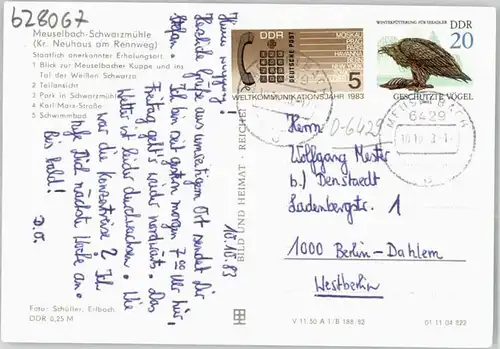 628067
Meuselbach-Schwarzmühle
(Kr. Neuhaus am Rennweg)
Staatlich anerkannter Erholungsort
1 Blick zur Meuselbacher Kuppe und ins
Tal der Weißen Schwarza
2 Teilansicht
3 Park in Schwarzmühle
4 Karl-Marx-Straße
5 Schwimmbad
Foto: Schüller, Erlbach
DDR 0,25 M
10.10.83
Herzliche Grüße aus
Ort sendet Dir
Stefan. Ich bin seit gestern morgen 7 00 Uhr hier,
Freitag geht's wieder nordwärts. Das
Wetter ist leider durchwachsen. Wie
war die Konzertreise 2. Ich
ruf Dich nächste Woche an.
Bis bald!
D.O.
BILD UND HEIMAT · REICHENBACH
DDR
MOSKAU
PRAG
BERLIN
HAVANNA
DEUTSCHE POST
5
WELTKOMMUNIKATIONSJAHR 1983
WINTERFÜTTERUNG FÜR SEEADLER
DDR
20
GESCHÜTZTE VÖGEL
MEUSELBACH
6429
O-6429
Herrn
Wolfgang Mester
b./ Denstaedt
Ladenbergstr. 1
1000 Berlin-Dahlem
Westberlin
V 11 50 A 1/B 188/82
01 11 04 822